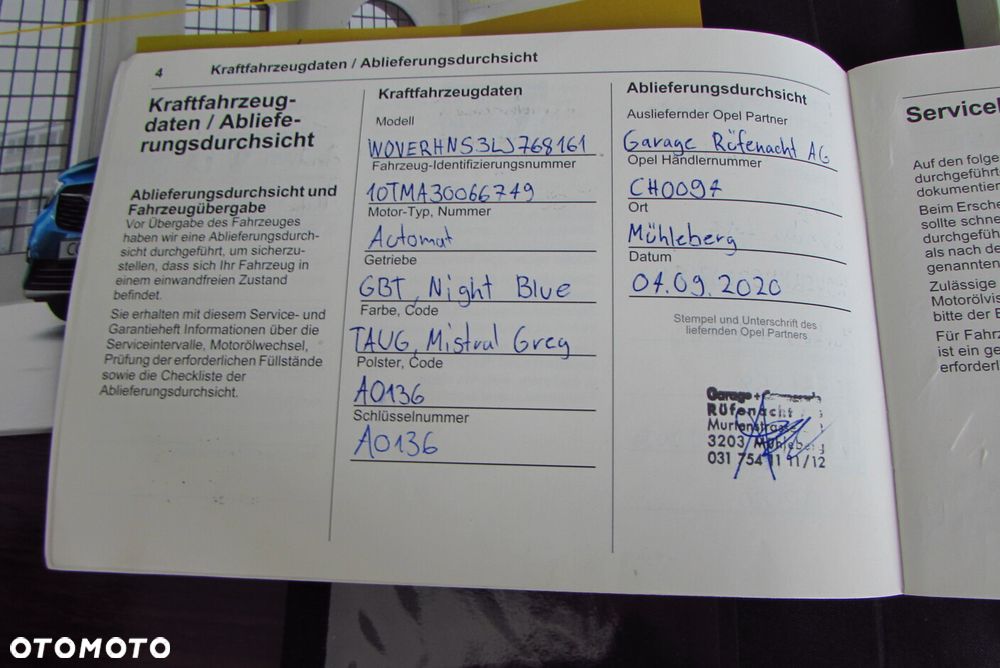 4 Kraftfahrzeugdaten / Ablieferungsdurchsicht
Kraftfahrzeug-
daten / Abliefe-
rungsdurchsicht
Ablieferungsdurchsicht und
Fahrzeugübergabe
Vor Übergabe des Fahrzeuges
haben wir eine Ablieferungsdurch-
sicht durchgeführt, um sicherzu-
stellen, dass sich Ihr Fahrzeug in
einem einwandfreien Zustand
befindet.
Sie erhalten mit diesem Service- und
Garantieheft Informationen über die
Serviceintervalle, Motorölwechsel,
Prüfung der erforderlichen Füllstände
sowie die Checkliste der
Ablieferungsdurchsicht.
Kraftfahrzeugdaten
Modell
W0VERHNS3LJ768161
Fahrzeug-Identifizierungsnummer
10TMA30066749
Motor-Typ, Nummer
Automat
Getriebe
GBT, Night Blue
Farbe, Code
TAUG, Mistral Grey
Polster, Code
A0136
Schlüsselnummer
A0136
Ablieferungsdurchsicht
Ausliefernder Opel Partner
Garage Rüfenacht AG
Opel Händlernummer
CH0097
Ort
Mühleberg
Datum
04.09.2020
Stempel und Unterschrift des
liefernden Opel Partners
Garage +
Rüfenacht
Murtenstrasse
3203 Mühleberg
031 754 11 11/12
Auf den folge
durchgeführt
dokumentier
Beim Ersche
sollte schne
durchgefüh
als nach de
genannten
Zulässige
Motorölvis
bitte der B
Für Fahrz
ist ein ge
erforderl
OTOMOTO